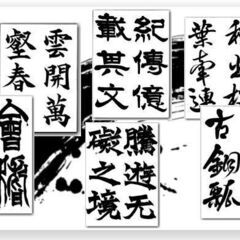 雲開萬
壑春
紀傳億
載其文
葉南連
騰遊无
礙之境
古銅